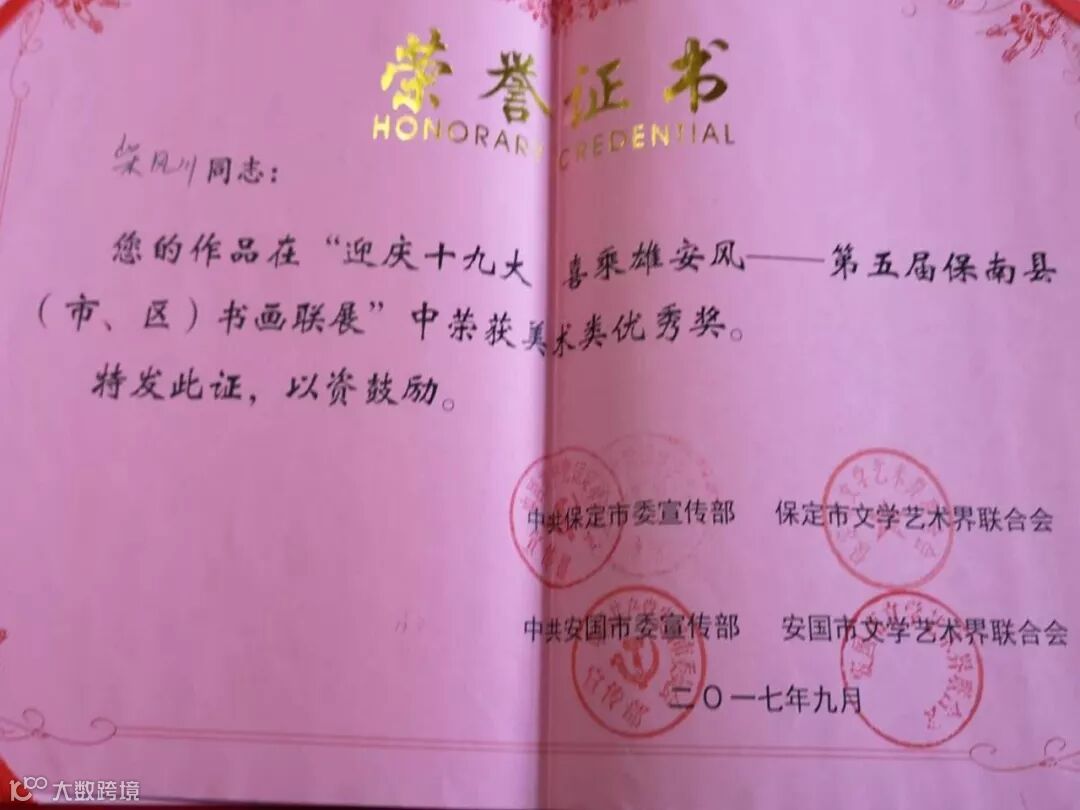 荣誉证书
HONORARY CREDENTIAL
柴凤川同志：
您的作品在“迎庆十九大 喜乘雄安风——第五届保南县
（市、区）书画联展”中荣获美术类优秀奖。
特发此证，以资鼓励。
中共保定市委宣传部 保定市文学艺术界联合会
中共安国市委宣传部 安国市文学艺术界联合会
二〇一七年九月
大数跨境